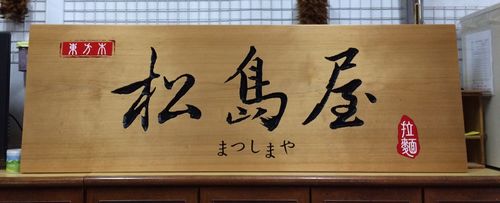 東方木
松島屋
まつしまや
拉麵